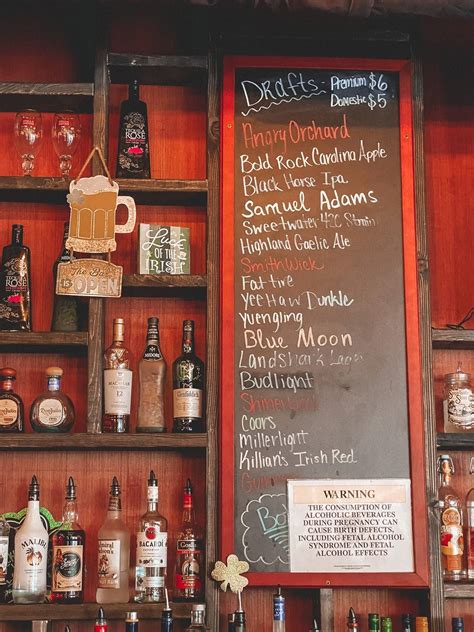 Drafts- Premium $6
Domestic $5
Angry Orchard
Bold Rock Carolina Apple
Black Horse Ipa
Samuel Adams
Sweetwater 420 Strain
Highland Gaelic Ale
SmithWick
Fat tire
Yee Haw Dunkle
Yuengling
Blue Moon
Landshark Lager
Budlight
Coors
Millerlight
Killian's Irish Red
WARNING
THE CONSUMPTION OF
ALCOHOLIC BEVERAGES
DURING PREGNANCY CAN
CAUSE BIRTH DEFECTS,
INCLUDING FETAL ALCOHOL
SYNDROME AND FETAL
ALCOHOL EFFECTS
TEQUILA
ROSE
The Bar
is OPEN
Luck
of the
IRISH
TEQUILA
ROSE
12
MIDORI
MALIBU
BACARDI